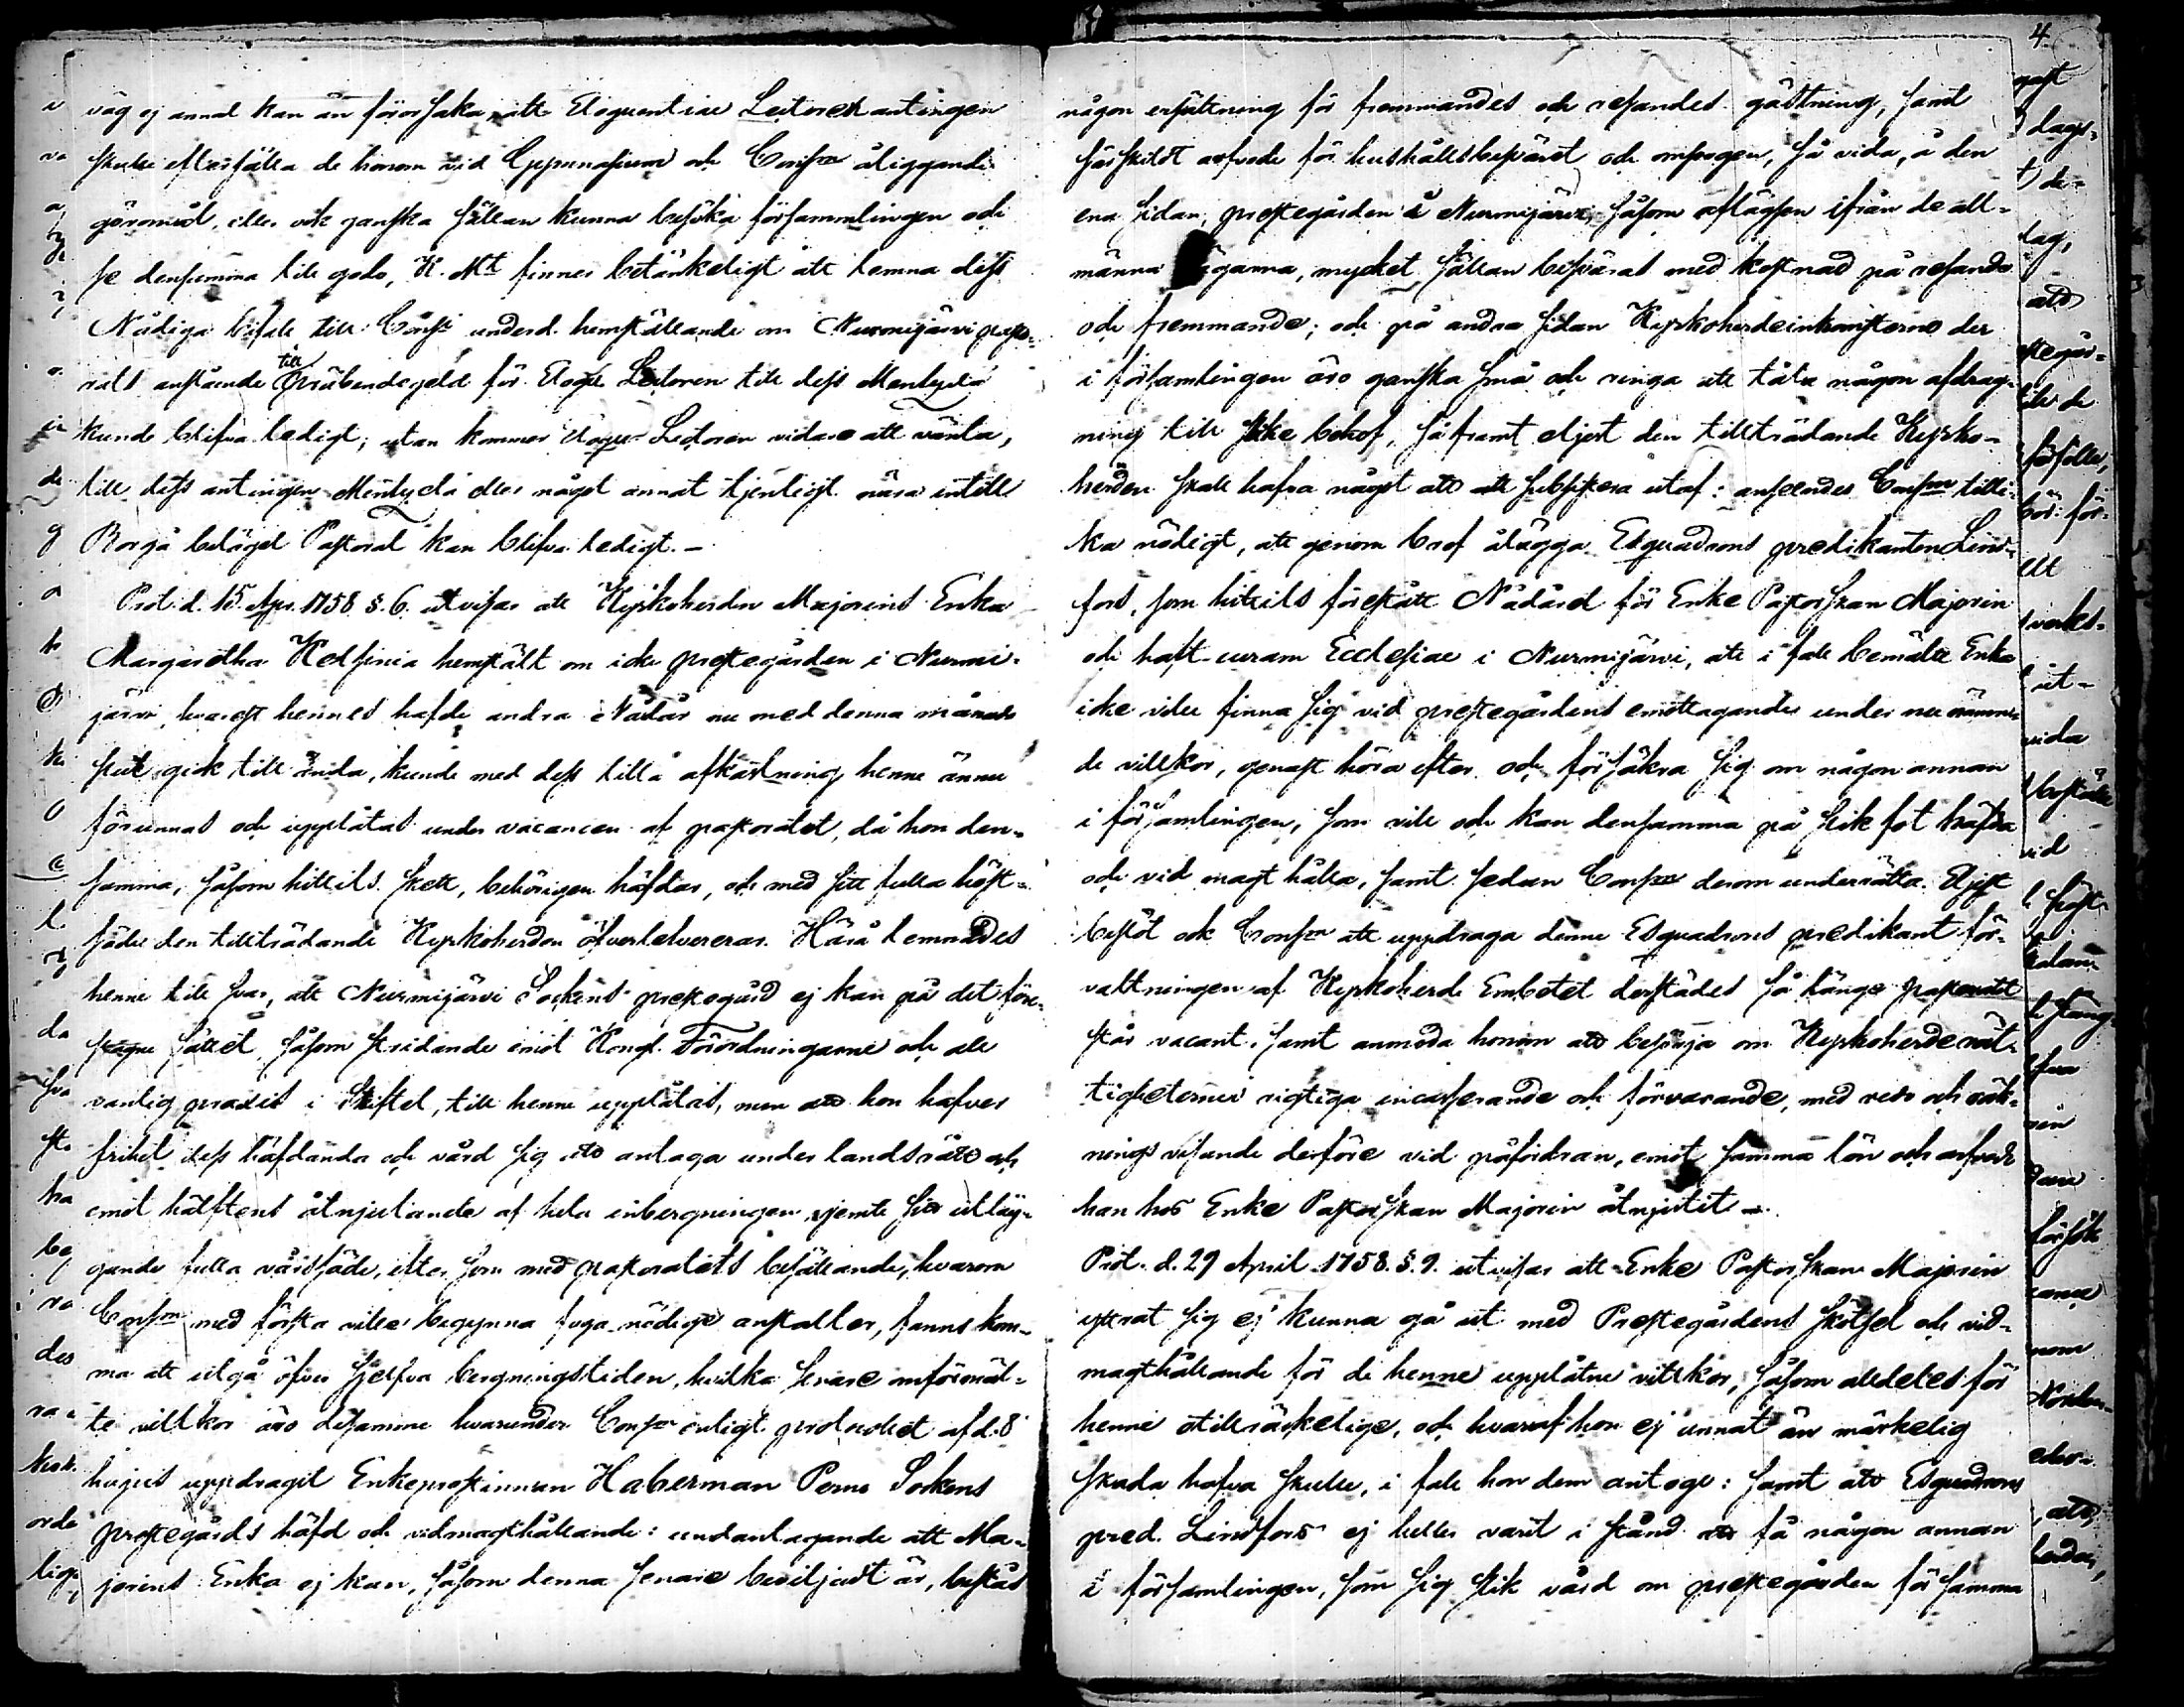 väg ej annat kan än förorsaka, att Eloquentiae Lectoren antingen
skulle eftersätta de honom vid Gymnasium och Cons:m åliggande
göromål, eller ock ganska sällan kunna besöka församlingen och
se densamma till godo, K. M:t finner betänkeligt att lemna dess
Nådiga bifall till Cons: underd. hemställande om Nurmijärvi pasto-
rats anslående till Præbendegeld för Eloqu: Lectoren till dess Mentzelä
kunde blifva ledigt, utan kommer Eloqu: Lectoren vidare att vänta,
till dess antingen Mentzelä eller något annat tjenligt nära intill
Borgå belägit Pastorat kan blifva ledigt. –
Prot. d. 15 Apr. 1758 §. 6. utvisar att Kyrkoherden Majorins Enka
Margaretha Helsinia hemstält om icke prestegården i Nurmi-
järvi, hvarest hennes hafde andra Nådår nu med denna månads
slut gick till ända, kunde med dess till afkastning henne ännu
förunnas och upplåtas under vacancen af pastoratet, då hon den-
samma, såsom hittills skett, behörigen häfdar, och med sitt fulla höst-
säde den tillträdande Kyrkoherden öfverleverera. Härå lemnades
henne till svar, att Nurmijärvi Sockens prestegård ej kan på det före-
slagne sättet, såsom stridande emot Kongl. Förordningarne och all
vanlig praxis i Stiftet, till henne upplåtas, men att hon hafver
frihet dess häfdande och vård sig att antaga under landsrätt och
emot hälftens åtnjutande af hela inbergningen, jemte sitt utläg-
gande fulla vårsäde, eller som med pastoratets besättande, hvarom
Cons:m med första ville begynna foga nödige anstalter, fanns kom-
ma att utgå öfver sjelfva bergningstiden, hvilka senare omförmäl-
te villkor äro desamme hvarunder Cons:m enligt protocollet af d. 8
hujus uppdragit Enkeprostinnan Haberman Perno Sockens
prestegårds häfd och vidmagthållande: undantagande att Ma-
jorins Enka ej kan, såsom denna senare beviljadt är, bestås
4
någon ersättning för fremmandes och resandes gästning, samt
särskildt arfvode för hushållsbesväret och omsorgen, så vida, å den
ena sidan, prestegården i Nurmijärvi, såsom aflägsen ifrån de all-
männa vägarna, mycket sällan besväras med kostnad på resande
och fremmande; och på andra sidan Kyrkoherdeinkomsterne der
i församlingen äro ganska små och ringa att tåla någon afdrag-
ning till slike behof, så framt eljest den tillträdande Kyrko-
herden skall hafva något att subsistera utaf: ansendes Cons:m tilli-
ka nödigt, att genom bref ålägga Esquadrons predikanten Lind-
fors, som hittils förestått Nådård för Enke Pastorskan Majorin
och haft curam Ecclesiae i Nurmijärvi, att i fall bemälte Enka
icke ville finna sig vid prestegårdens emottagande under nu nämn-
de villkor, genast höra efter och försäkra sig om någon annan
i församlingen, som vill och kan densamma på slik fot häfda
och vid magt hålla, samt sedan Cons:m derom underrätta. Eljest
beslöt ock Cons:m att uppdraga denne Esquadrons predikant för-
valtningen af Kyrkoherde Embetet derstädes så länge pastoratet
står vacant, samt anmoda honom att besörja om Kyrkoherderät-
tigheternes rigtiga incasserande och förvarande, med redo och räk-
nings visande derföre vid påfordran, emot samma lön och arfvode
han hos Enke Pastorskan Majorin åtnjutit –.
Prot. d. 29 April 1758. §. 9. utvisar att Enke Pastorskan Majorin
yttrat sig ej kunna gå ut med Prestegårdens skötsel och vid-
magthållande för de henne upplåtne villkor, såsom alldeles för
henne otillräckelige, och hvaraf hon ej annat än märkelig
skada hafva skulle, i fall hon dem antoge: samt att Esquadrons
pred. Lindfors ej heller varit i stånd att få någon annan
i församlingen, som sig slik vård om prestegården för samma